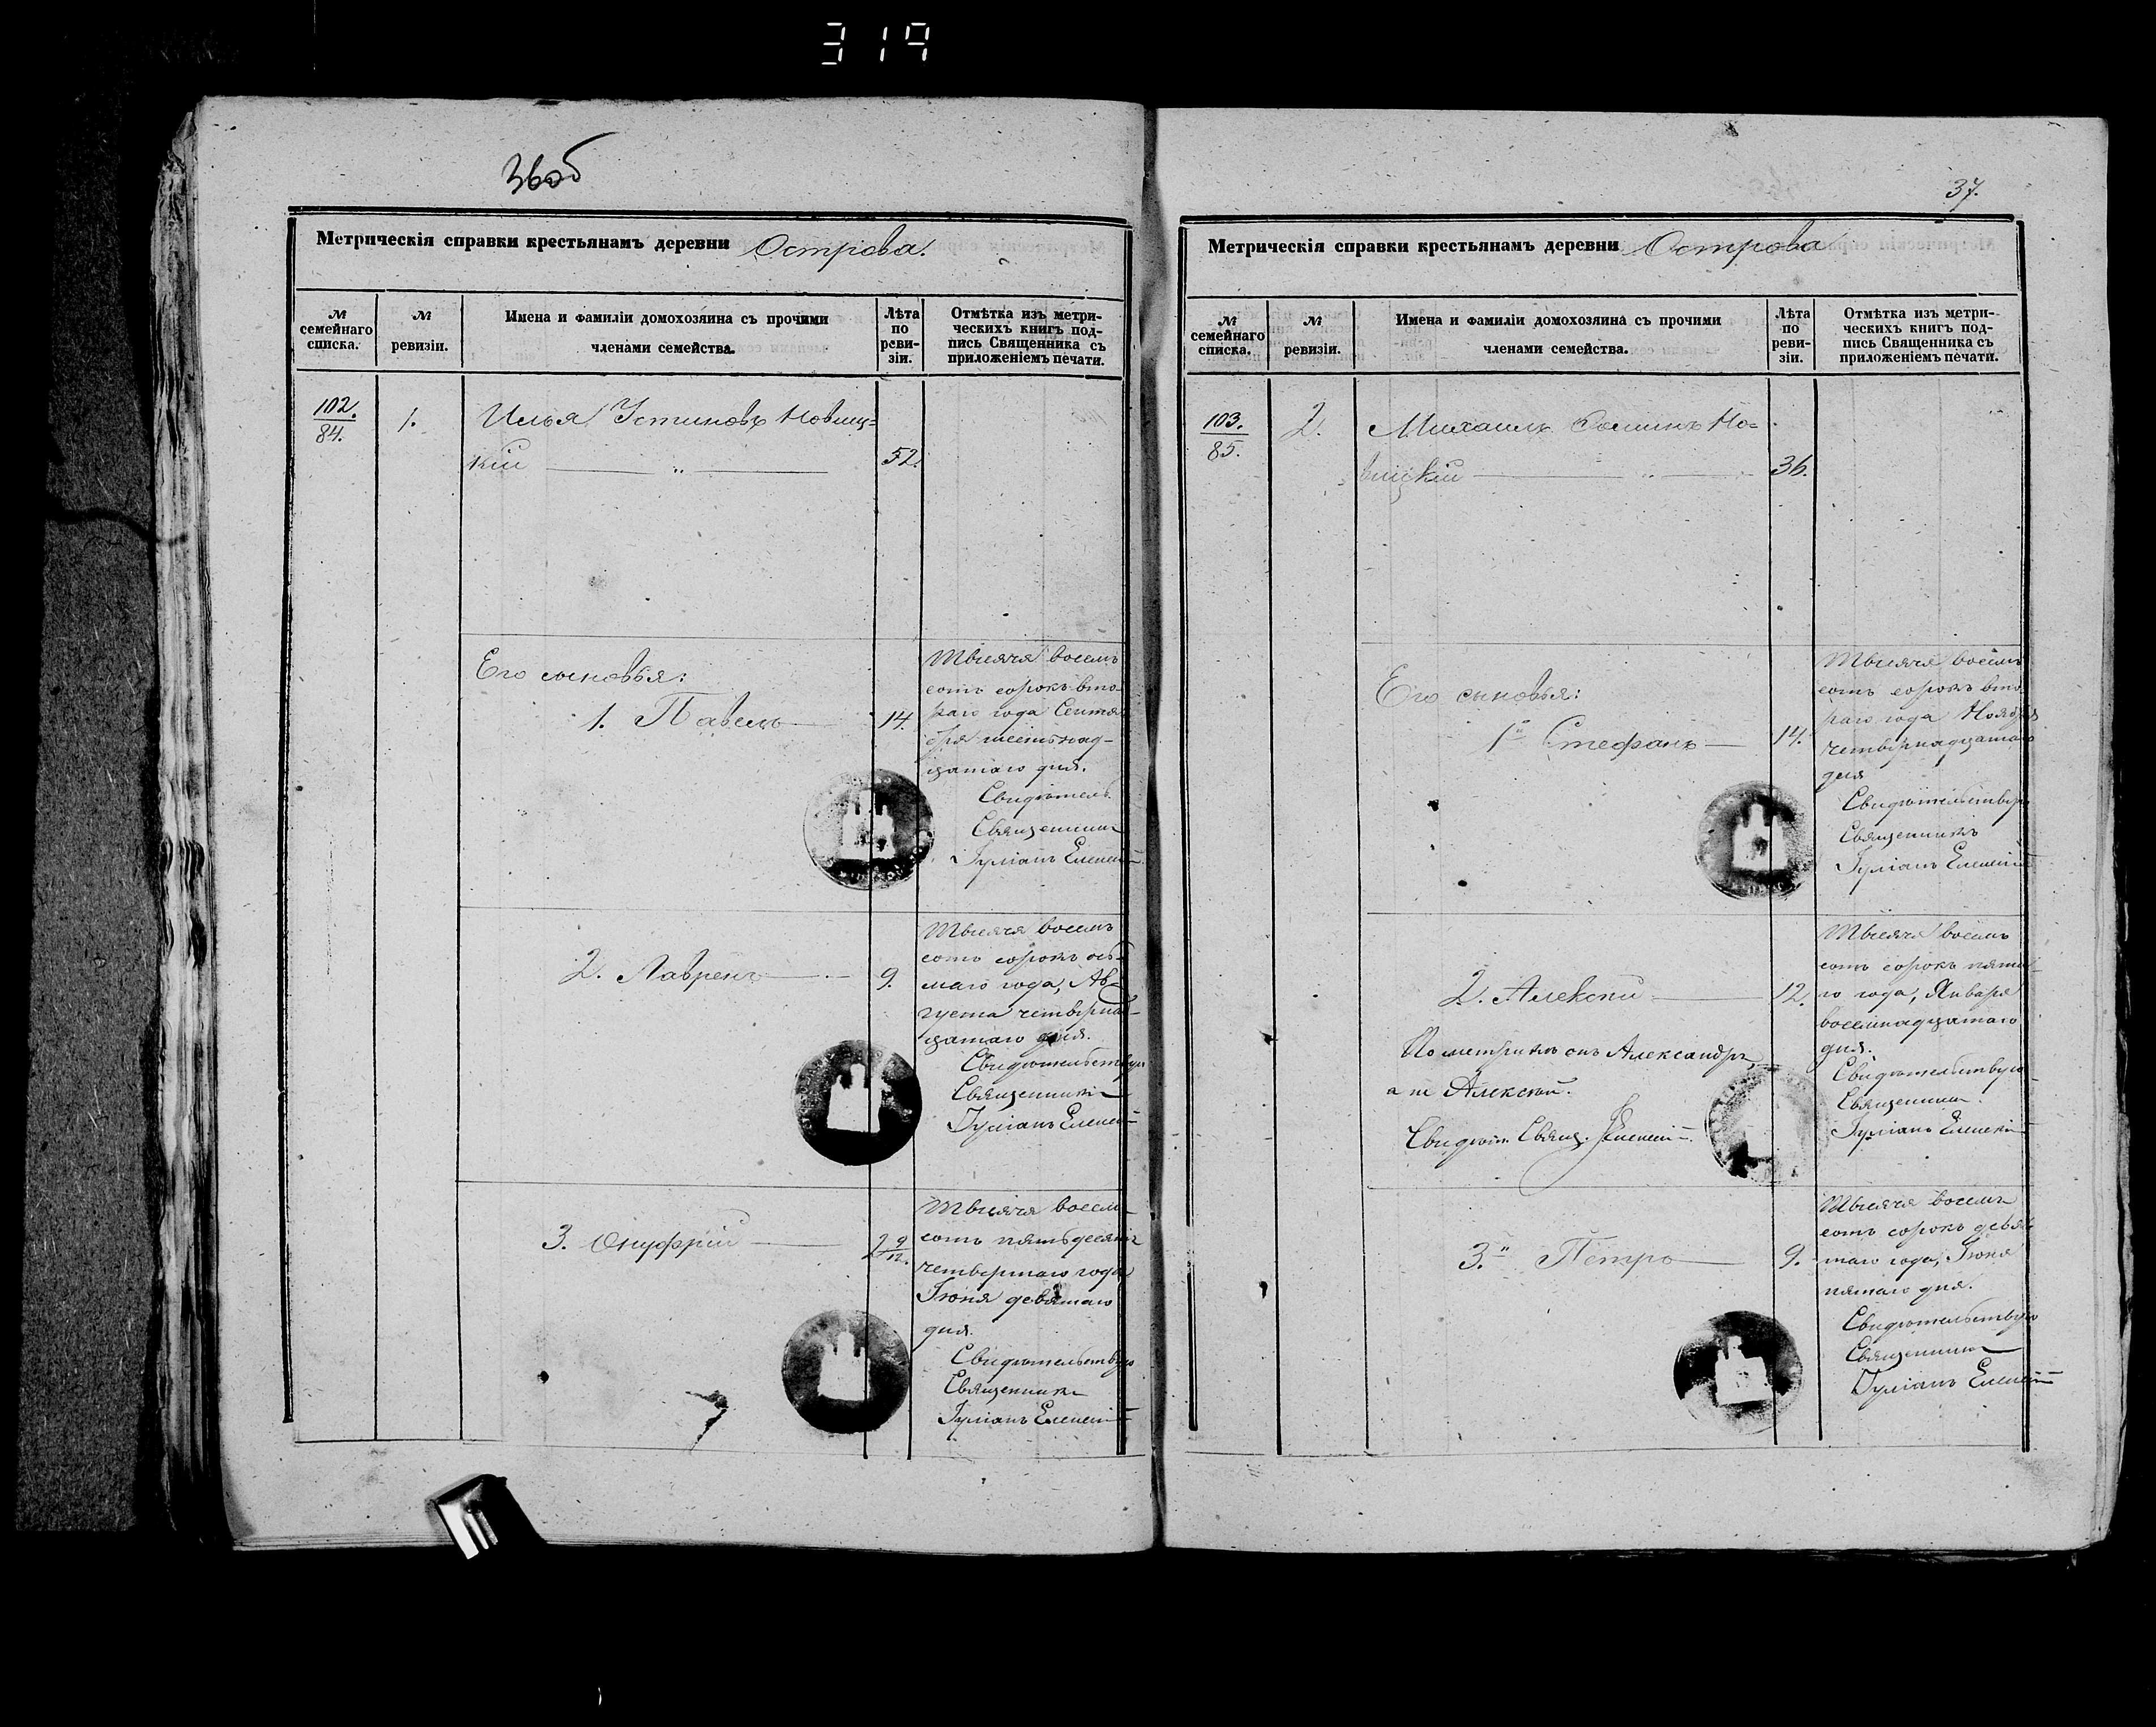 319
36об
Метрическія справки крестьянамъ деревни Острова.
№ семейнаго списка.
№ ревизіи.
Имена и фамиліи домохозяина съ прочими членами семейства.
Лѣта по реви-зіи.
Отмѣтка изъ метри-
ческихъ книгъ под-
пись Священника съ
приложеніемъ печати.
102.
84.
1.
Илья Устиновъ Новиц=
кій — „ — 52.
Его сыновья:
1. Павелъ — 14.
Тысяча восемь
сотъ сорокъ вто-
раго года Сентя
бря шестьнад-
цатаго дня.
Свидѣтель.
Священникъ
Іуліанъ
2. Лавренъ — 9.
Тысяча восемь
сотъ сорокъ ось-
маго года, Ав-
густа четвернад-
цатаго дня.
Свидѣтельствую
Священникъ
Іуліанъ
3. Онуфрій — 2 9/12.
Тысяча восемь
сотъ пятьдесятъ
четвертаго года
Іюня девятаго
дня.
Свидѣтельствую
Священникъ
Іуліанъ
37.
Метрическія справки крестьянамъ деревни Острова
№ семейнаго списка.
№ ревизіи.
Имена и фамиліи домохозяина съ прочими членами семейства.
Лѣта по реви-зіи.
Отмѣтка изъ метри-
ческихъ книгъ под-
пись Священника съ
приложеніемъ печати.
103.
85.
2.
Михаилъ Но=
вицкій — „ — 36.
Его сыновья:
1. Стефанъ — 14.
Тысяча восемь
сотъ сорокъ вто
раго года Ноября
четвернадцатаго
дня
Свидѣтельствую
Священникъ
Іуліанъ
2. Алексѣй — 12.
По метрикѣ онъ Александръ,
а не Алексѣй.
Свидѣт. Свящ.
Тысяча восемь
сотъ сорокъ пята-
го года, Января
восемнадцатаго
дня.
Свидѣтельствую
Священникъ
Іуліанъ
3. Петро — 9.
Тысяча восемь
сотъ сорокъ девя
таго года, Іюня
пятаго дня.
Свидѣтельствую
Священникъ
Іуліанъ